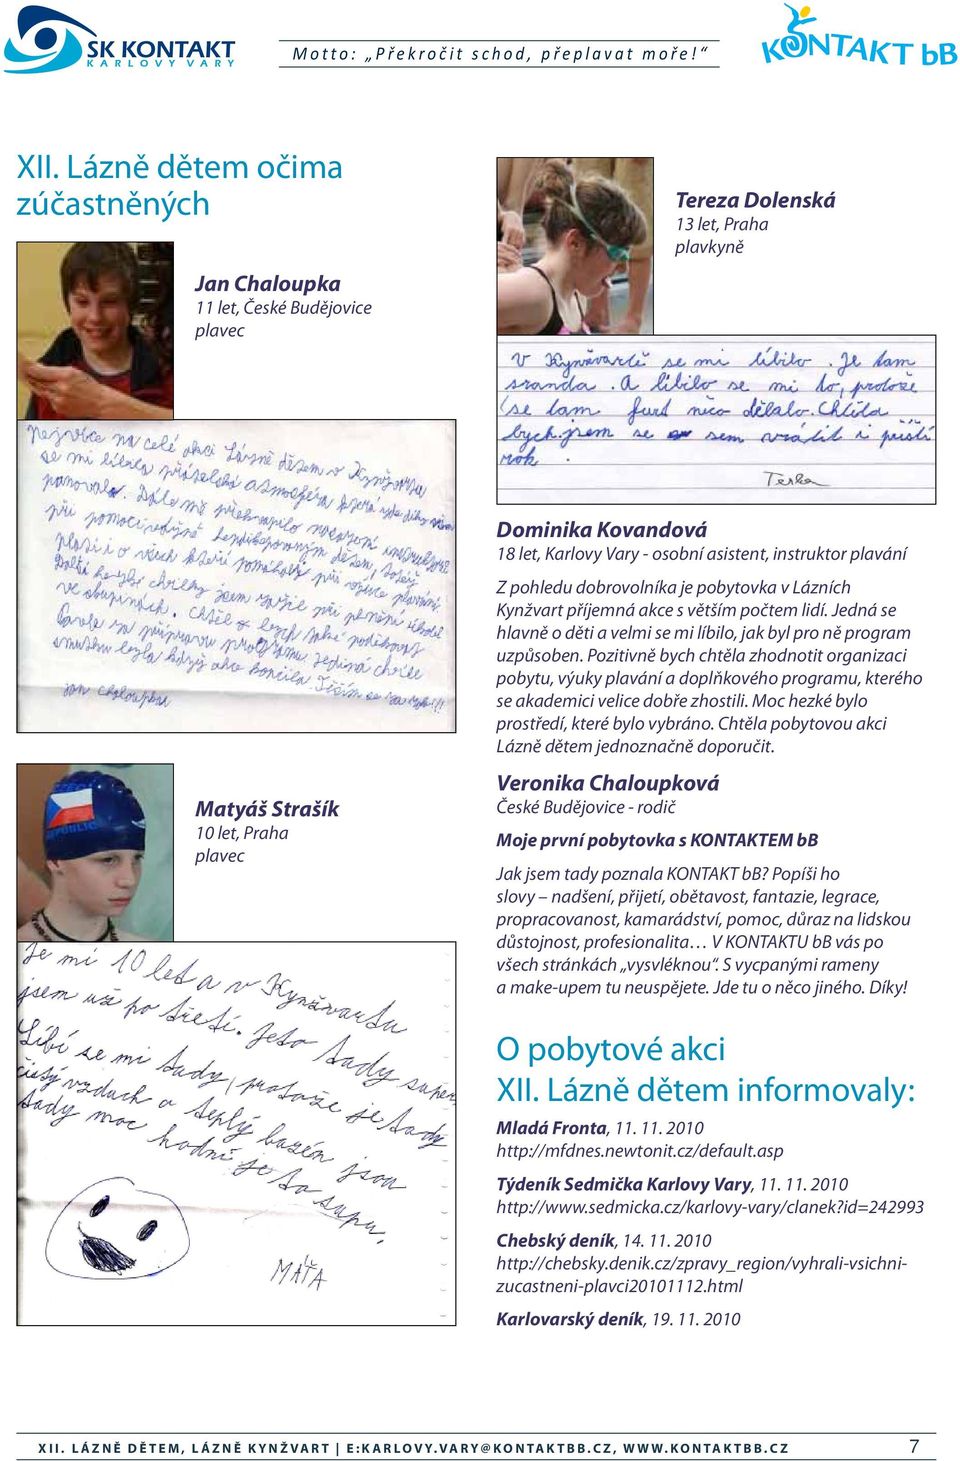 SK KONTAKT
KARLOVY VARY
Motto: „Překročit schod, přeplavat moře! “
KONTAKT bB
XII. Lázně dětem očima
zúčastněných
Jan Chaloupka
11 let, České Budějovice
plavec
Nejvíce na celé akci Lázně dětem v Kynžvartu
se mi líbila přátelská atmosféra která
panovala. Dále mě překvapilo nasazení
při pomoci
plastí i o všech kteří pomáhali při výuce plavání.
Další hezké chvilky jsem zažil při plnění úkolů
ve skupinách. Chtěl bych také poděkovat
za přípravu programu. Jediná chvíle
když akce končila Těším se
Jan Chaloupka
Matyáš Strašík
10 let, Praha
plavec
REPUBLIC
Je mi 10 let a v Kynžvartu
jsem už po třetí. Jeto tady super
Líbí se mi tady, protože je tady
čistý vzduch a teplý bazén jsou
tady moc hodní je to supr.
MÁŤA
Tereza Dolenská
13 let, Praha
plavkyně
V Kynžvartě se mi líbilo. Je tam
sranda. A líbilo se mi to, protože
se tam furd něco dělalo. Chtěla
bych jsem se sem vrátit i příští
rok.
Terka
Dominika Kovandová
18 let, Karlovy Vary - osobní asistent, instruktor plavání
Z pohledu dobrovolníka je pobytovka v Lázních
Kynžvart příjemná akce s větším počtem lidí. Jedná se
hlavně o děti a velmi se mi líbilo, jak byl pro ně program
uzpůsoben. Pozitivně bych chtěla zhodnotit organizaci
pobytu, výuky plavání a doplňkového programu, kterého
se akademici velice dobře zhostili. Moc hezké bylo
prostředí, které bylo vybráno. Chtěla pobytovou akci
Lázně dětem jednoznačně doporučit.
Veronika Chaloupková
České Budějovice - rodič
Moje první pobytovka s KONTAKTEM bB
Jak jsem tady poznala KONTAKT bB? Popíši ho
slovy – nadšení, přijetí, obětavost, fantazie, legrace,
propracovanost, kamarádství, pomoc, důraz na lidskou
důstojnost, profesionalita… V KONTAKTU bB vás po
všech stránkách „vysvléknou“. S vycpanými rameny
a make-upem tu neuspějete. Jde tu o něco jiného. Díky!
O pobytové akci
XII. Lázně dětem informovaly:
Mladá Fronta, 11. 11. 2010
http://mfdnes.newtonit.cz/default.asp
Týdeník Sedmička Karlovy Vary, 11. 11. 2010
http://www.sedmicka.cz/karlovy-vary/clanek?id=242993
Chebský deník, 14. 11. 2010
http://chebsky.denik.cz/zpravy_region/vyhrali-vsichni-
zucastneni-plavci20101112.html
Karlovarský deník, 19. 11. 2010
XII. LÁZNĚ DĚTEM, LÁZNĚ KYNŽVART | E:KARLOVY.VARY@KONTAKTBB.CZ, WWW.KONTAKTBB.CZ 7